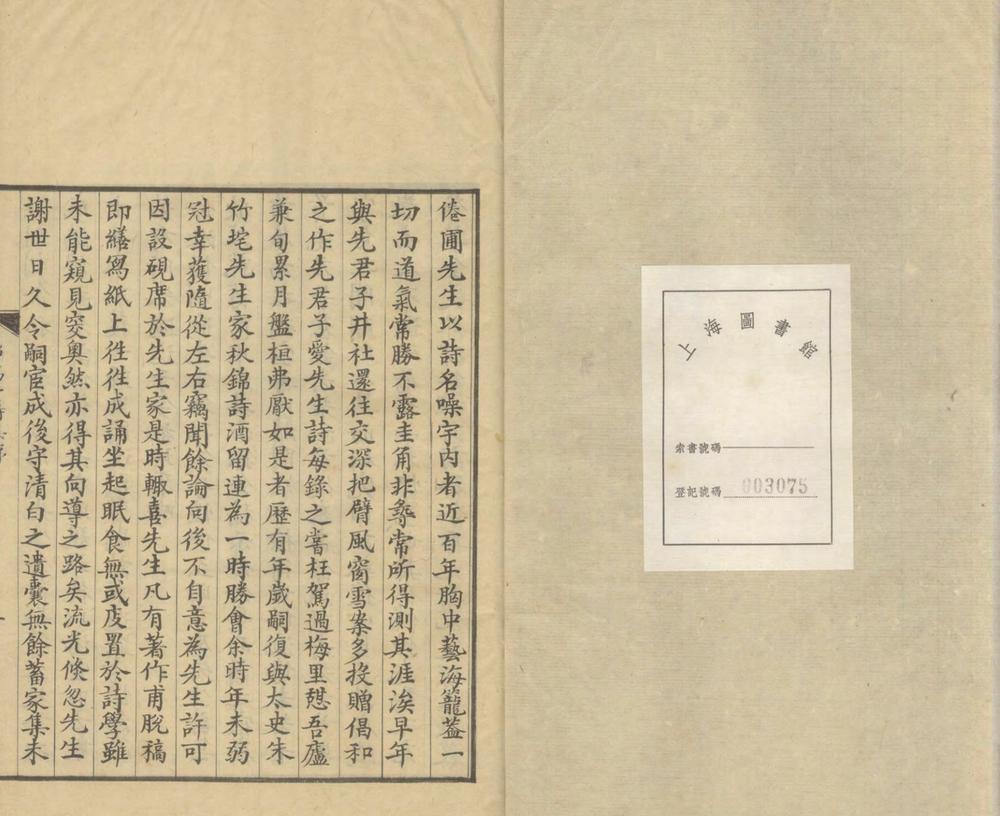 上海圖書館
索書號碼
登記號碼 003075
倦圃先生以詩名噪宇內者近百年胸中藝海籠蓋一
切而道氣常勝不露圭角非尋常所得測其涯涘早年
與先君子井社還往交深把臂風窗雪案多投贈倡和
之作先君子愛先生詩每錄之嘗枉駕過梅里憇吾廬
兼旬累月盤桓弗厭如是者歷有年歲嗣復與太史朱
竹垞先生家秋錦詩酒留連為一時勝會余時年未弱
冠幸獲隨從左右竊聞餘論向後不自意為先生許可
因設硯席於先生家是時輙喜先生凡有著作甫脫稿
即繕寫紙上徃徃成誦坐起眠食無或庋置於詩學雖
未能窺見窔奧然亦得其向導之路矣流光倏忽先生
謝世日久令嗣宦成後守清白之遺囊無餘蓄家集未